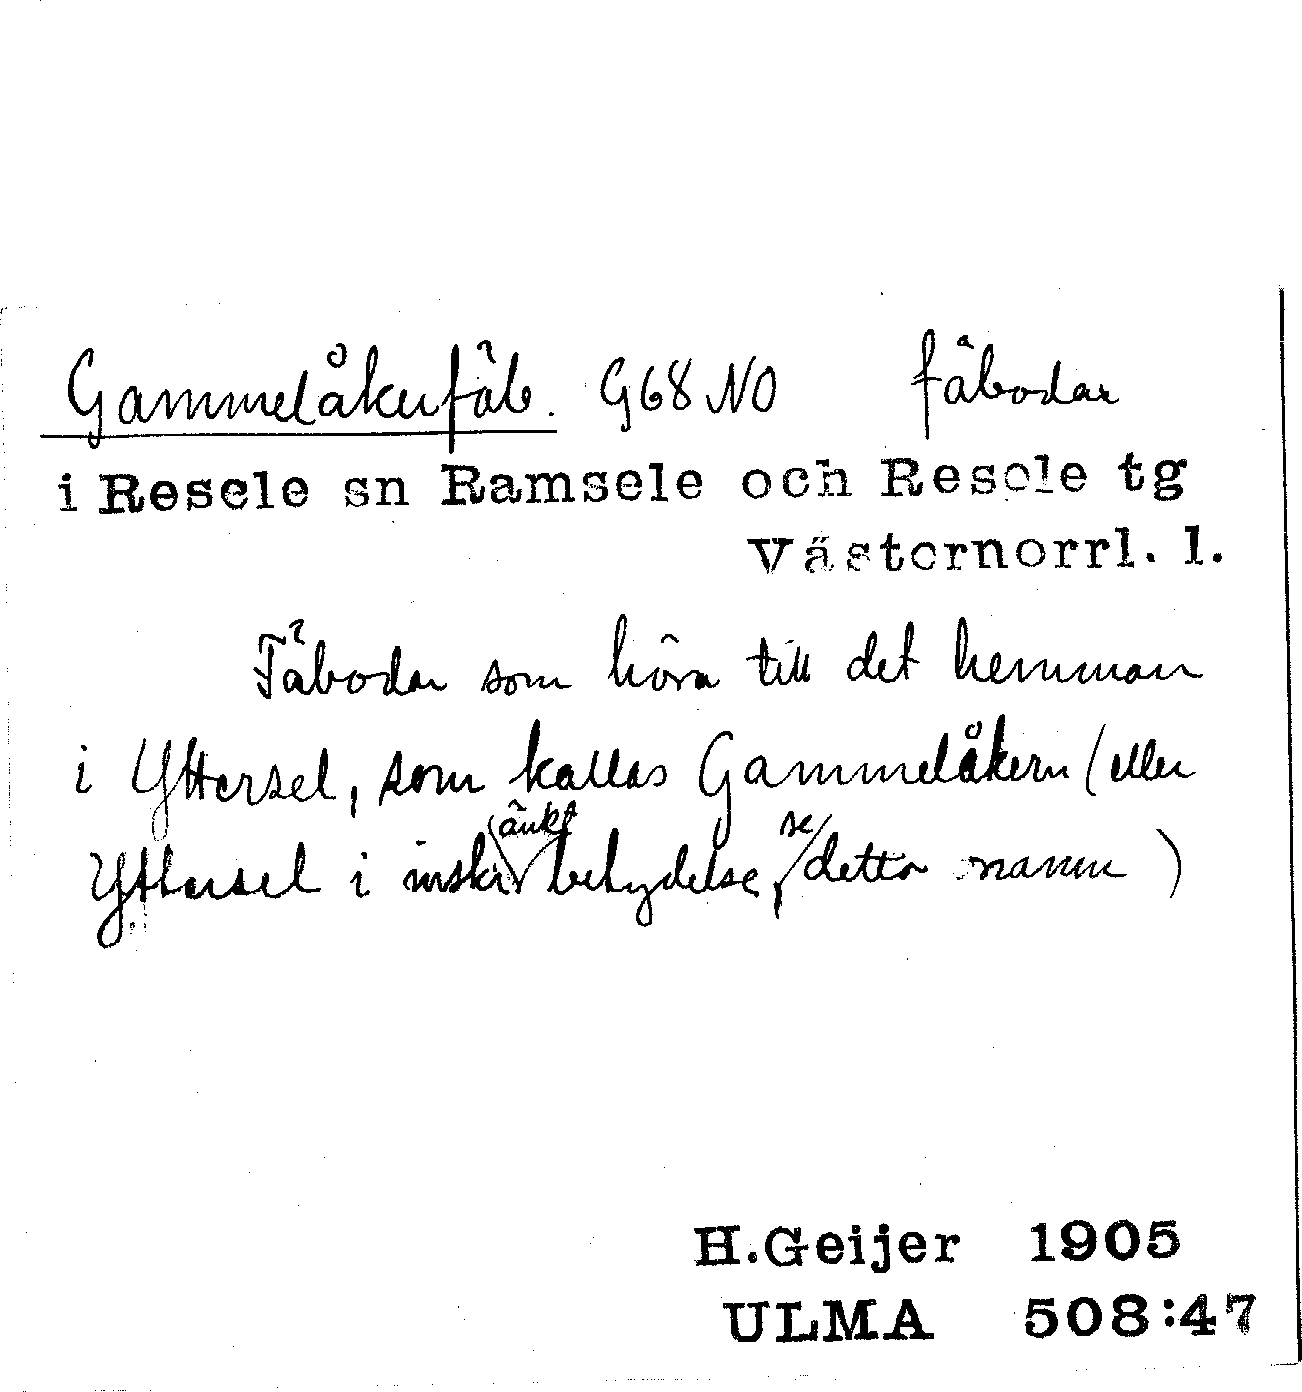 Gammelåkerfäb. G68 NO fäbodar
i Resele sn Ramsele och Resele tg
Västernorrl. l.
Fäbodar som höra till det hemman
i Yttersel, som kallas Gammelåkern (eller
Yttersel i inskränkt betydelse, se detta namn)
H.Geijer 1905
ULMA 508:47